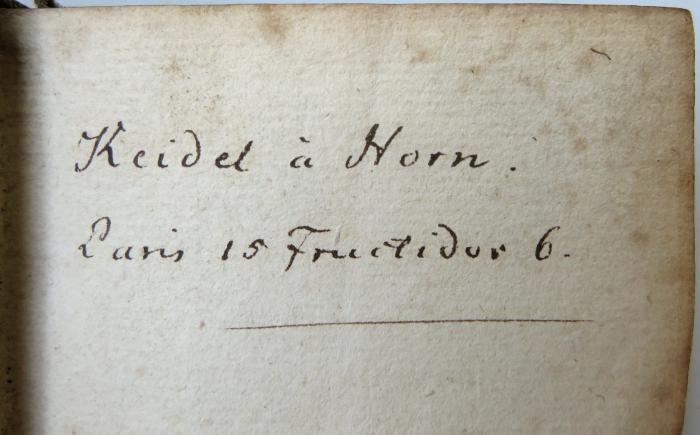 Keidel à Horn.
Paris 15 Fructidor 6.